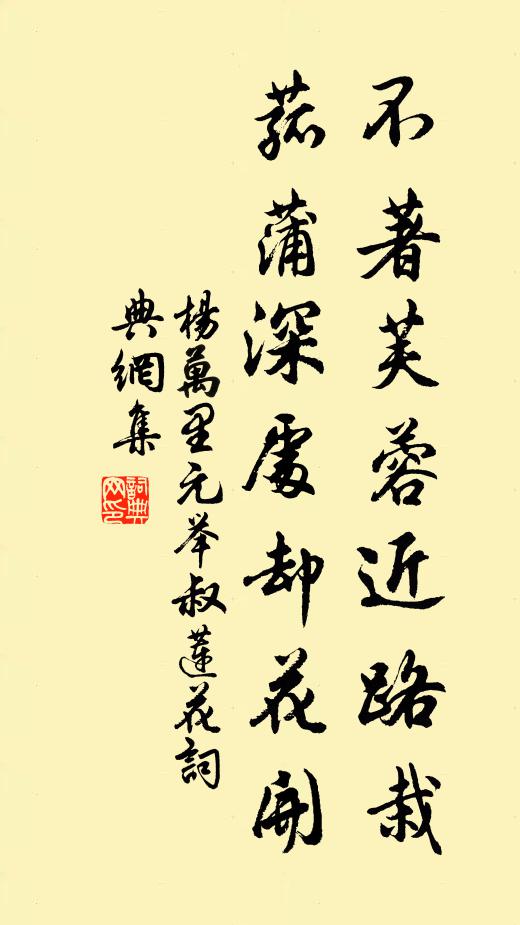 不著芙蓉近路栽
菰蒲深處却花開
楊萬里元举叔蓮花詞
典網集
詞典网印